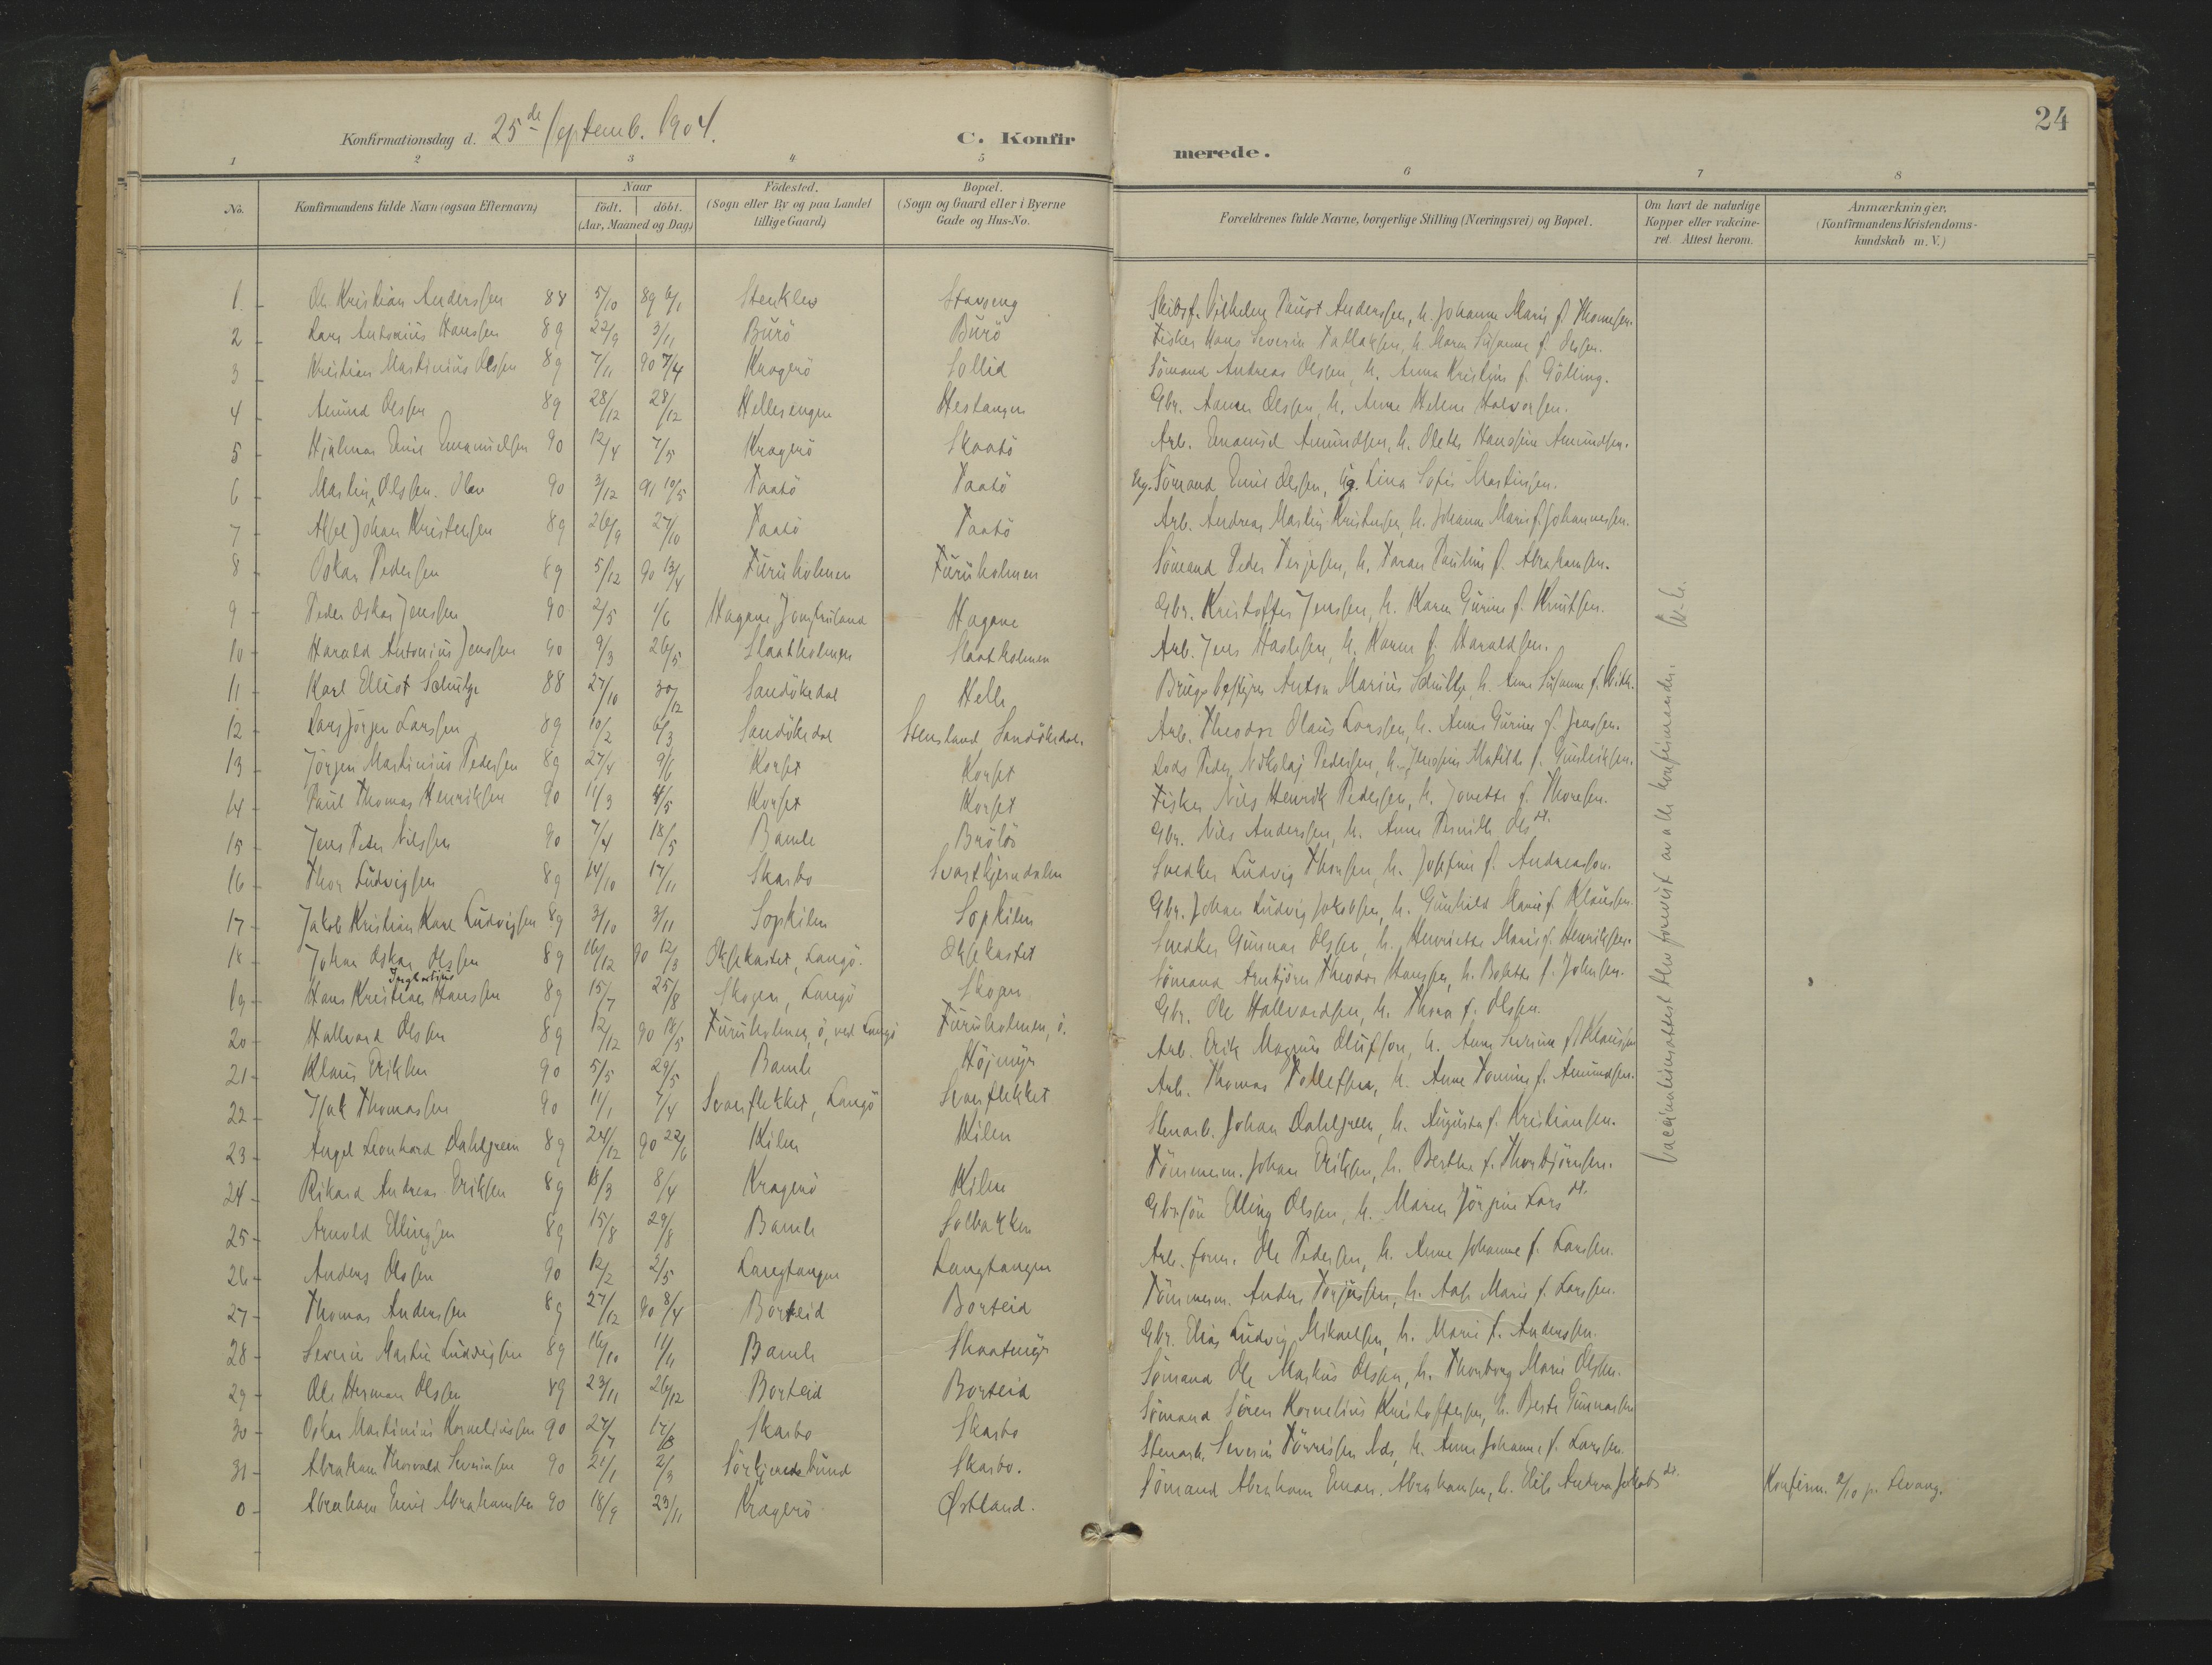 24
Konfirmationsdag d. 25de Septemb. 1904.
C. Konfirmerede.
1 2 3 4 5 6 7 8
No.
Konfirmandens fulde Navn (ogsaa Efternavn)
Naar
födt. döbt.
(Aar, Maaned og Dag)
Födested.
(Sogn eller By og paa Landet
tillige Gaard)
Bopæl.
(Sogn og Gaard eller i Byerne
Gade og Hus-No.
Forældrenes fulde Navne, borgerlige Stilling (Næringsvei) og Bopæl.
Om havt de naturlige
Kopper eller vakcine-
ret. Attest herom.
Anmærkninger.
(Konfirmandens Kristendoms-
kundskab m. V.)
1. Ole Kristian Anderssen 88 5/10 89 6/1 Stavseng Skibsf. Vilhelm Faust Anderssen, h. Johanne Marie f. Thomesen.
2 Lars Antonius Hanssen 89 22/9 3/11 Burö Burö Fisker Hans Severin Tallaksen, h. Maren Susanne f. Olsen.
3 Kristian Martinius Olssen 89 7/11 90 7/4 Kragerö Sollid Sömand Andreas Olssen, h. Anna Kristine f. Götling.
4 Amund Olssen 89 28/12 28/12 Hellesengen Hestangen Gbr. Aanen Olssen, h. Anne Helene Halvorsen.
5 Hjalmar Emil Emanuelsen 90 12/4 7/5 Kragerö Skaatö Arb. Emanuel Amundsen, h. Olette Hansine Amundsen.
6 Martin Olssen. Olav 90 3/12 91 10/5 Taatö Taatö Ug. Sömand Emil Olssen, Ug. Lina Sofie Martinsen.
7 Aksel Johan Kristensen 89 26/9 27/10 Taatö Taatö Arb. Andreas Martin Kristensen, h. Johanne Marie f. Johannessen.
8 Oskar Pedersen 89 5/12 90 13/4 Furuholmen Furuholmen Sömand Peder Terjesen, h. Taran Pauline f. Abrahamsen.
9 Peder Oskar Jenssen 90 2/5 1/6 Hagane, Jomfruland Hagane Gbr. Kristoffer Jenssen, h. Karen Gurine f. Knutsen.
10 Harald Antonius Jenssen 90 9/3 26/5 Slaatholmen Slaatholmen Arb. Jens h. Karen f. Haraldsen.
11 Karl Elliot Schultze 88 27/10 30/12 Sandökedal Helle Brugsbestyrer Anton Marius Schultze, h. Anne Susanne f.
12 Lars Jörgen Larssen 89 10/2 6/3 Sandökedal Stensland Sandökedal. Arb. Theodor Olaus Larssen, h. Anne Gurine f. Jenssen.
13 Jörgen Martinius Pedersen 89 27/4 9/6 Korset Korset Lods Peder Nikolaj Pedersen, h. Jensine Matilde f. Gunleiksen.
14 Paul Thomas Henriksen 90 11/3 4/5 Korset Korset Fisker Nils Henrik Pedersen, h. Jonette f. Thoresen.
15 Jens Peter Nilssen 90 7/4 18/5 Bamle Brölös Gbr. Nils Anderssen, h. Anne Pernille Olsdt.
16 Thor Ludvigsen 89 14/10 17/11 Skarbo Svartkjerndalen Snedker Ludvig Thorsen, h. Josefine f. Andreasson.
17 Jakob Kristian Karl Ludvigsen 89 3/10 3/11 Sopkilen Sopkilen Gbr. Johan Ludvig Jakobsen, h. Gunhild Marie f. Klausen.
18 Johan Oskar Olssen 89 16/12 90 12/3 Oksekastet, Langö. Oksekastet Snedker Gunnar Olssen, h. Henriette Marie f. Henriksen.
19 Hans Kristian Ingbertius Hanssen 89 15/7 25/8 Skogen, Langö Skogen Sömand Arnbjörn Theodor Hanssen, h. Bolette f. Johnsen.
20 Hallvard Olssen 89 12/12 90 18/5 Furuholmen, ö, ved Langö Furuholmen, ö. Gbr. Ole Hallvordsen, h. Thora f. Olssen.
21 Klaus Eriksen 90 5/5 29/5 Bamle Höjmyr Arb. Erik Magnus Olufson, h. Anne Severine f. Klausen
22 Isak Thomassen 90 11/1 7/4 Svanflekket, Langö Svanflekket Arb. Thomas Tollefsen, h. Anne Tomine f. Amundsen.
23 Angel Leonhard Dahlgreen 89 24/12 90 22/6 Kilen Kilen Stenarb. Johan Dahlgreen, h. Augusta f. Kristiansen.
24 Rikard Andreas Eriksen 89 18/3 8/4 Kragerö Kilen Tömmerm. Johan Eriksen, h. Berthe f. Thorbjörnsen.
25 Arnold Ellingsen 89 15/8 29/8 Bamle Solbakken Gbrsön Elling Olssen, h. Maren Jörgine Larsdt.
26 Anders Olssen 90 12/2 2/5 Langtangen Langtangen Arb. form. Ole Pedersen, h. Anne Johanne f. Larssen.
27 Thomas Anderssen 89 27/12 90 8/4 Borteid Borteid Tömmerm. Anders Torjussen, h. Aase Marie f. Larssen.
28 Severin Martin Ludvigsen 89 16/10 11/11 Bamle Skaatmyr Gbr. Elias Ludvig Mikaelsen, h. Marie f. Anderssen.
29 Ole Herman Olssen 89 23/11 26/12 Borteid Borteid Sömand Ole Markus Olssen, h. Thorborg Marie Olssen.
30 Oskar Martinius Korneliussen 90 27/7 17/8 Skarbo Skarbo Sömand Sören Kornelius Kristoffersen, h. Berte Gunnarsen
31 Abraham Thorvald Severinsen 90 21/1 2/3 Skarbo. Stenarb. Severin h. Anne Johanne f. Larssen.
0 Abraham Emil Abrahamsen 90 18/9 23/11 Kragerö Østland. Sömand Abraham Eman. Abrahamsen, h. Elise Andrea Jakobsdt. Konfirm. 2/10 p. Levang.
Vaccinationsattest blev forevist av alle konfirmander.